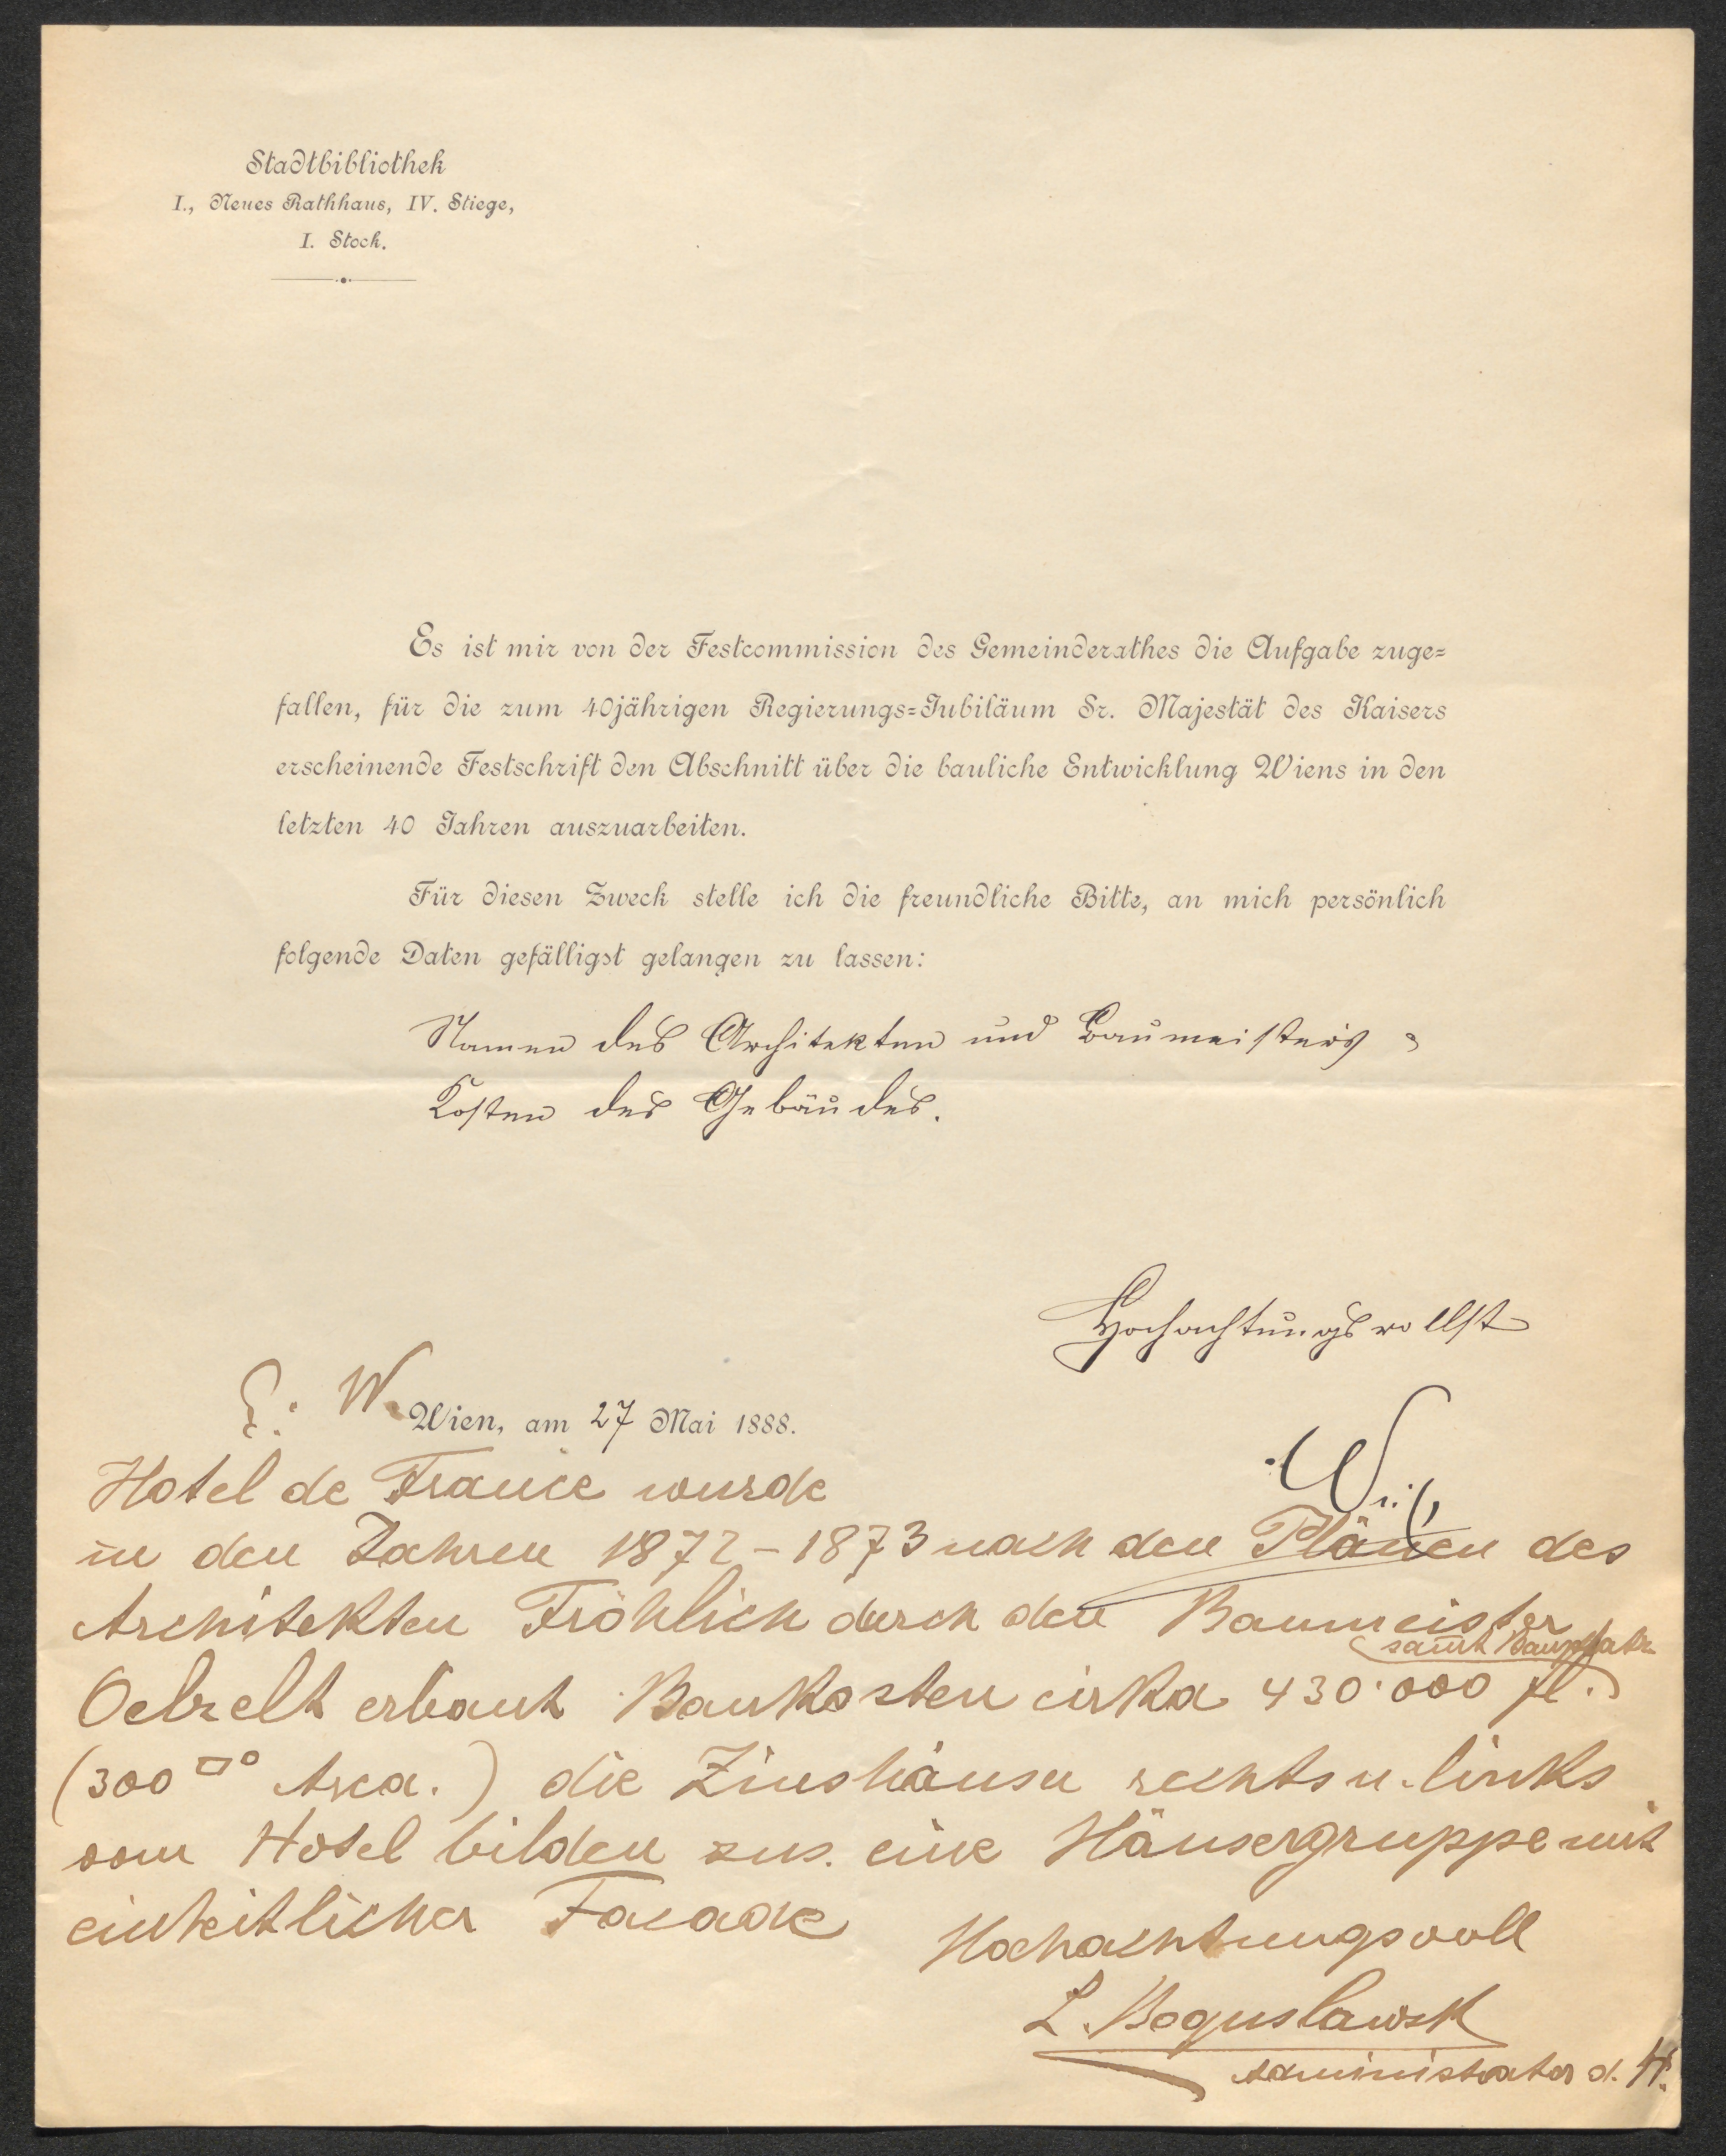 Stadtbibliothek
I., Neues Rathhaus, IV. Stiege,
I. Stock.
Es ist mir von der Festcommission des Gemeinderathes die Aufgabe zuge=
fallen, für die zum 40jährigen Regierungs=Jubiläum Sr. Majestät des Kaisers
erscheinende Festschrift den Abschnitt über die bauliche Entwicklung Wiens in den
letzten 40 Jahren auszuarbeiten.
Für diesen Zweck stelle ich die freundliche Bitte, an mich persönlich
folgende Daten gefälligst gelangen zu lassen:
Namen des Architekten und Baumeisters,
Kosten des Gebäudes.
Hochachtungsvollst
Wien, am 27 Mai 1888.
Hotel de France wurde
in den Jahren 1872-1873 nach den Plänen des
Architekten Fröhlich durch den Baumeister
Oelzelt erbaut Baukosten cirka 430.000 fl.
(300 □° Area.) die Zinshäuser rechts u. links
vom Hotel bilden zus. eine Häusergruppe mit
einheitlicher Facade
Hochachtungsvoll
L. Boguslawsk
Administrator d. H.